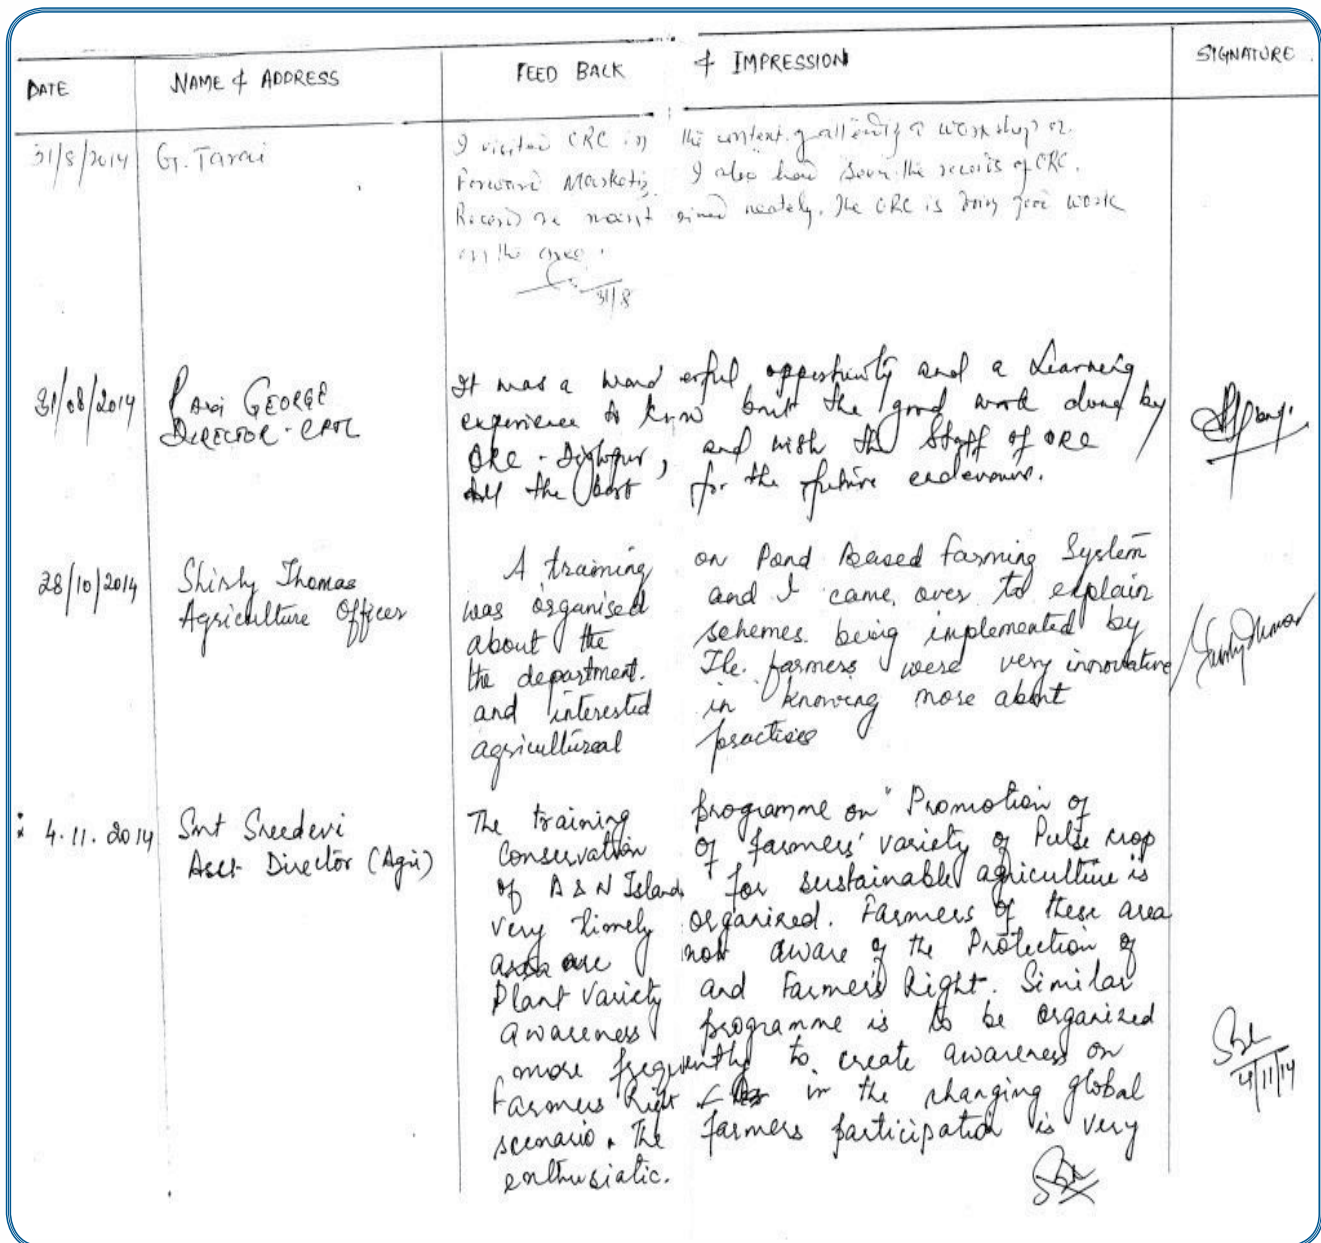 DATE NAME & ADDRESS FEED BACK & IMPRESSION SIGNATURE
31/8/2014 G. Tarai I visited CRC in the context of attending a workshop on
Forward Marketing. I also had seen the records of CRC.
Records are maintained neately. The CRC is doing good work
in the area.
31/8
31/08/2014 GEORGE It was a wonderful opportunity and a Learning
DIRECTOR - experience to know bout the good work done by
CRC - , and wish the Staff of CRC
All the best for the future endevours.
28/10/2014 Shirly Thomas A training on Pond Based Farming System
Agriculture Officer was organised and I came over to explain
about the schemes being implemented by
the department. The farmers were very innovative
and interested in knowing more about
agricultural practices
4.11.2014 Smt Sreedevi The training programme on "Promotion of
Asst. Director (Agri) Conservation of farmers' variety of Pulse crop
of A & N Island" for sustainable agriculture is
very timely organized. Farmers of these area
are not aware of the Protection of
Plant Variety and Farmers Right. Similar
awareness programme is to be organized
more frequently to create awareness on
Farmers Right in the changing global
scenario. The farmers participation is very
enthusiatic.
4/11/14